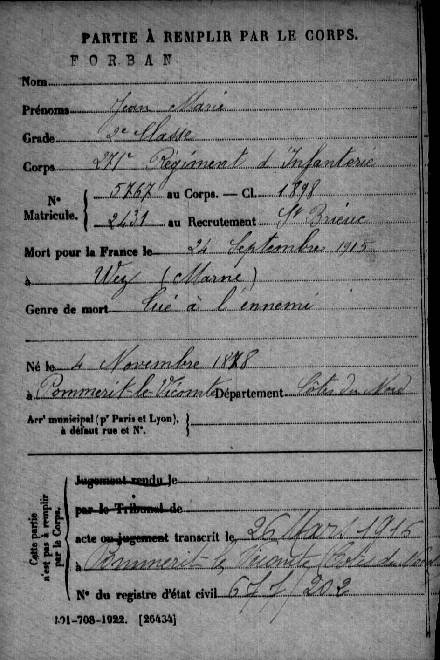 PARTIE À REMPLIR PAR LE CORPS.
FORBAN
Nom
Prénoms Jean Marie
Grade 2e Classe
Corps 271e Régiment d'Infanterie
N° Matricule. { 5767 au Corps. — Cl. 1898
2431 au Recrutement St Brieuc
Mort pour la France le 24 Septembre 1915
à (Marne)
Genre de mort Tué à l'ennemi
Né le 4 Novembre 1878
à Pommerit-le-Vicomte Département Côtes du Nord
Arrt municipal (pr Paris et Lyon), à défaut rue et N°. }
Cette partie n'est pas à remplir par le Corps. {
Jugement rendu le
par le Tribunal de
acte ou jugement transcrit le 26 Mars 1916
à Pommerit le Vicomte (Côtes du Nord
N° du registre d'état civil 677/202
101-708-1922. [26434]